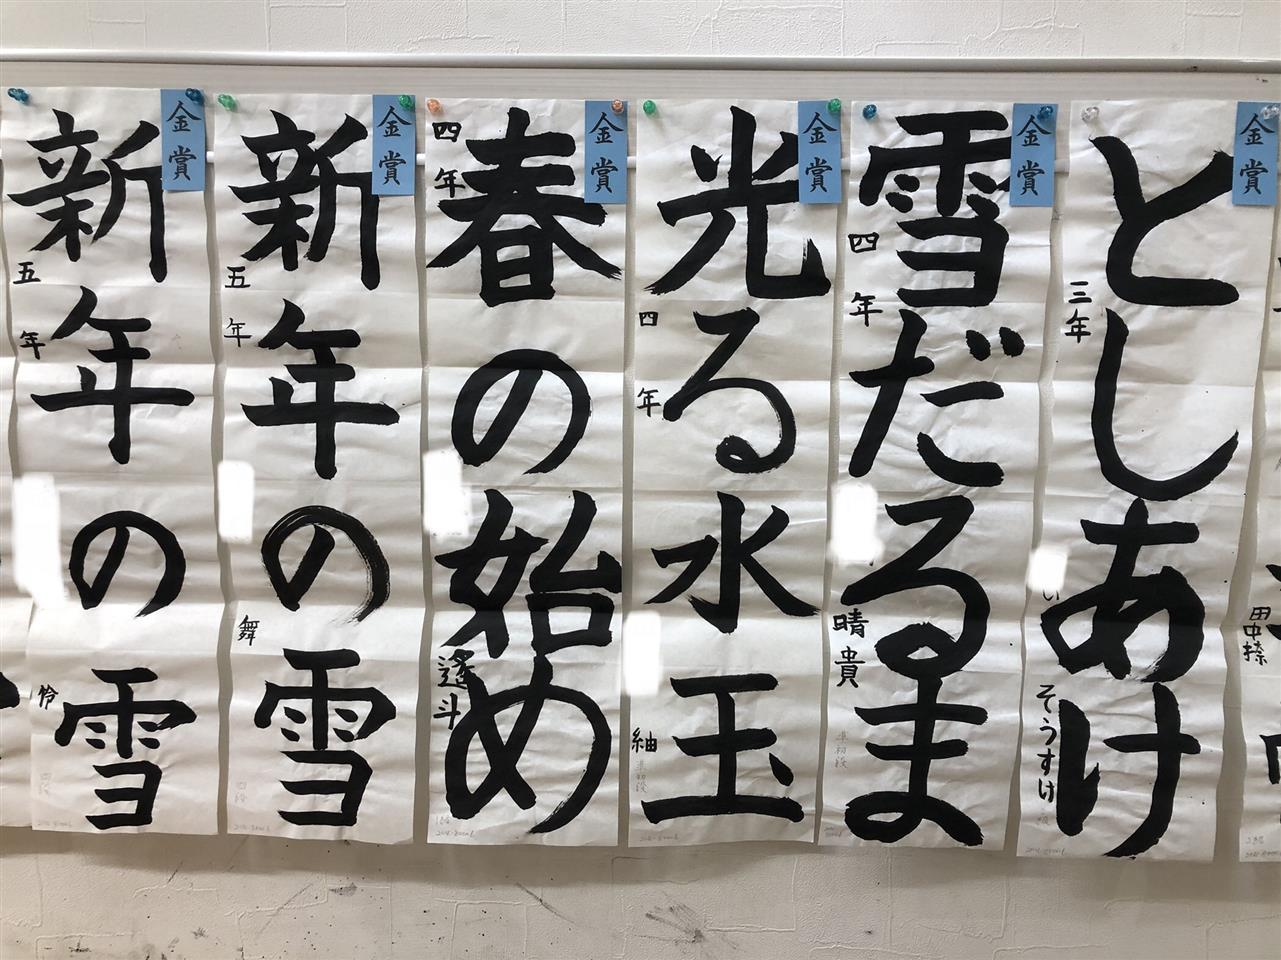 金賞
としあけ
三年
そうすけ
金賞
雪だるま
四年
晴貴
準初段
金賞
光る水玉
四年
紬
準初段
金賞
春の始め
四年
透斗
金賞
新年の雪
五年
舞
四段
金賞
新年の雪
五年
伶
四段